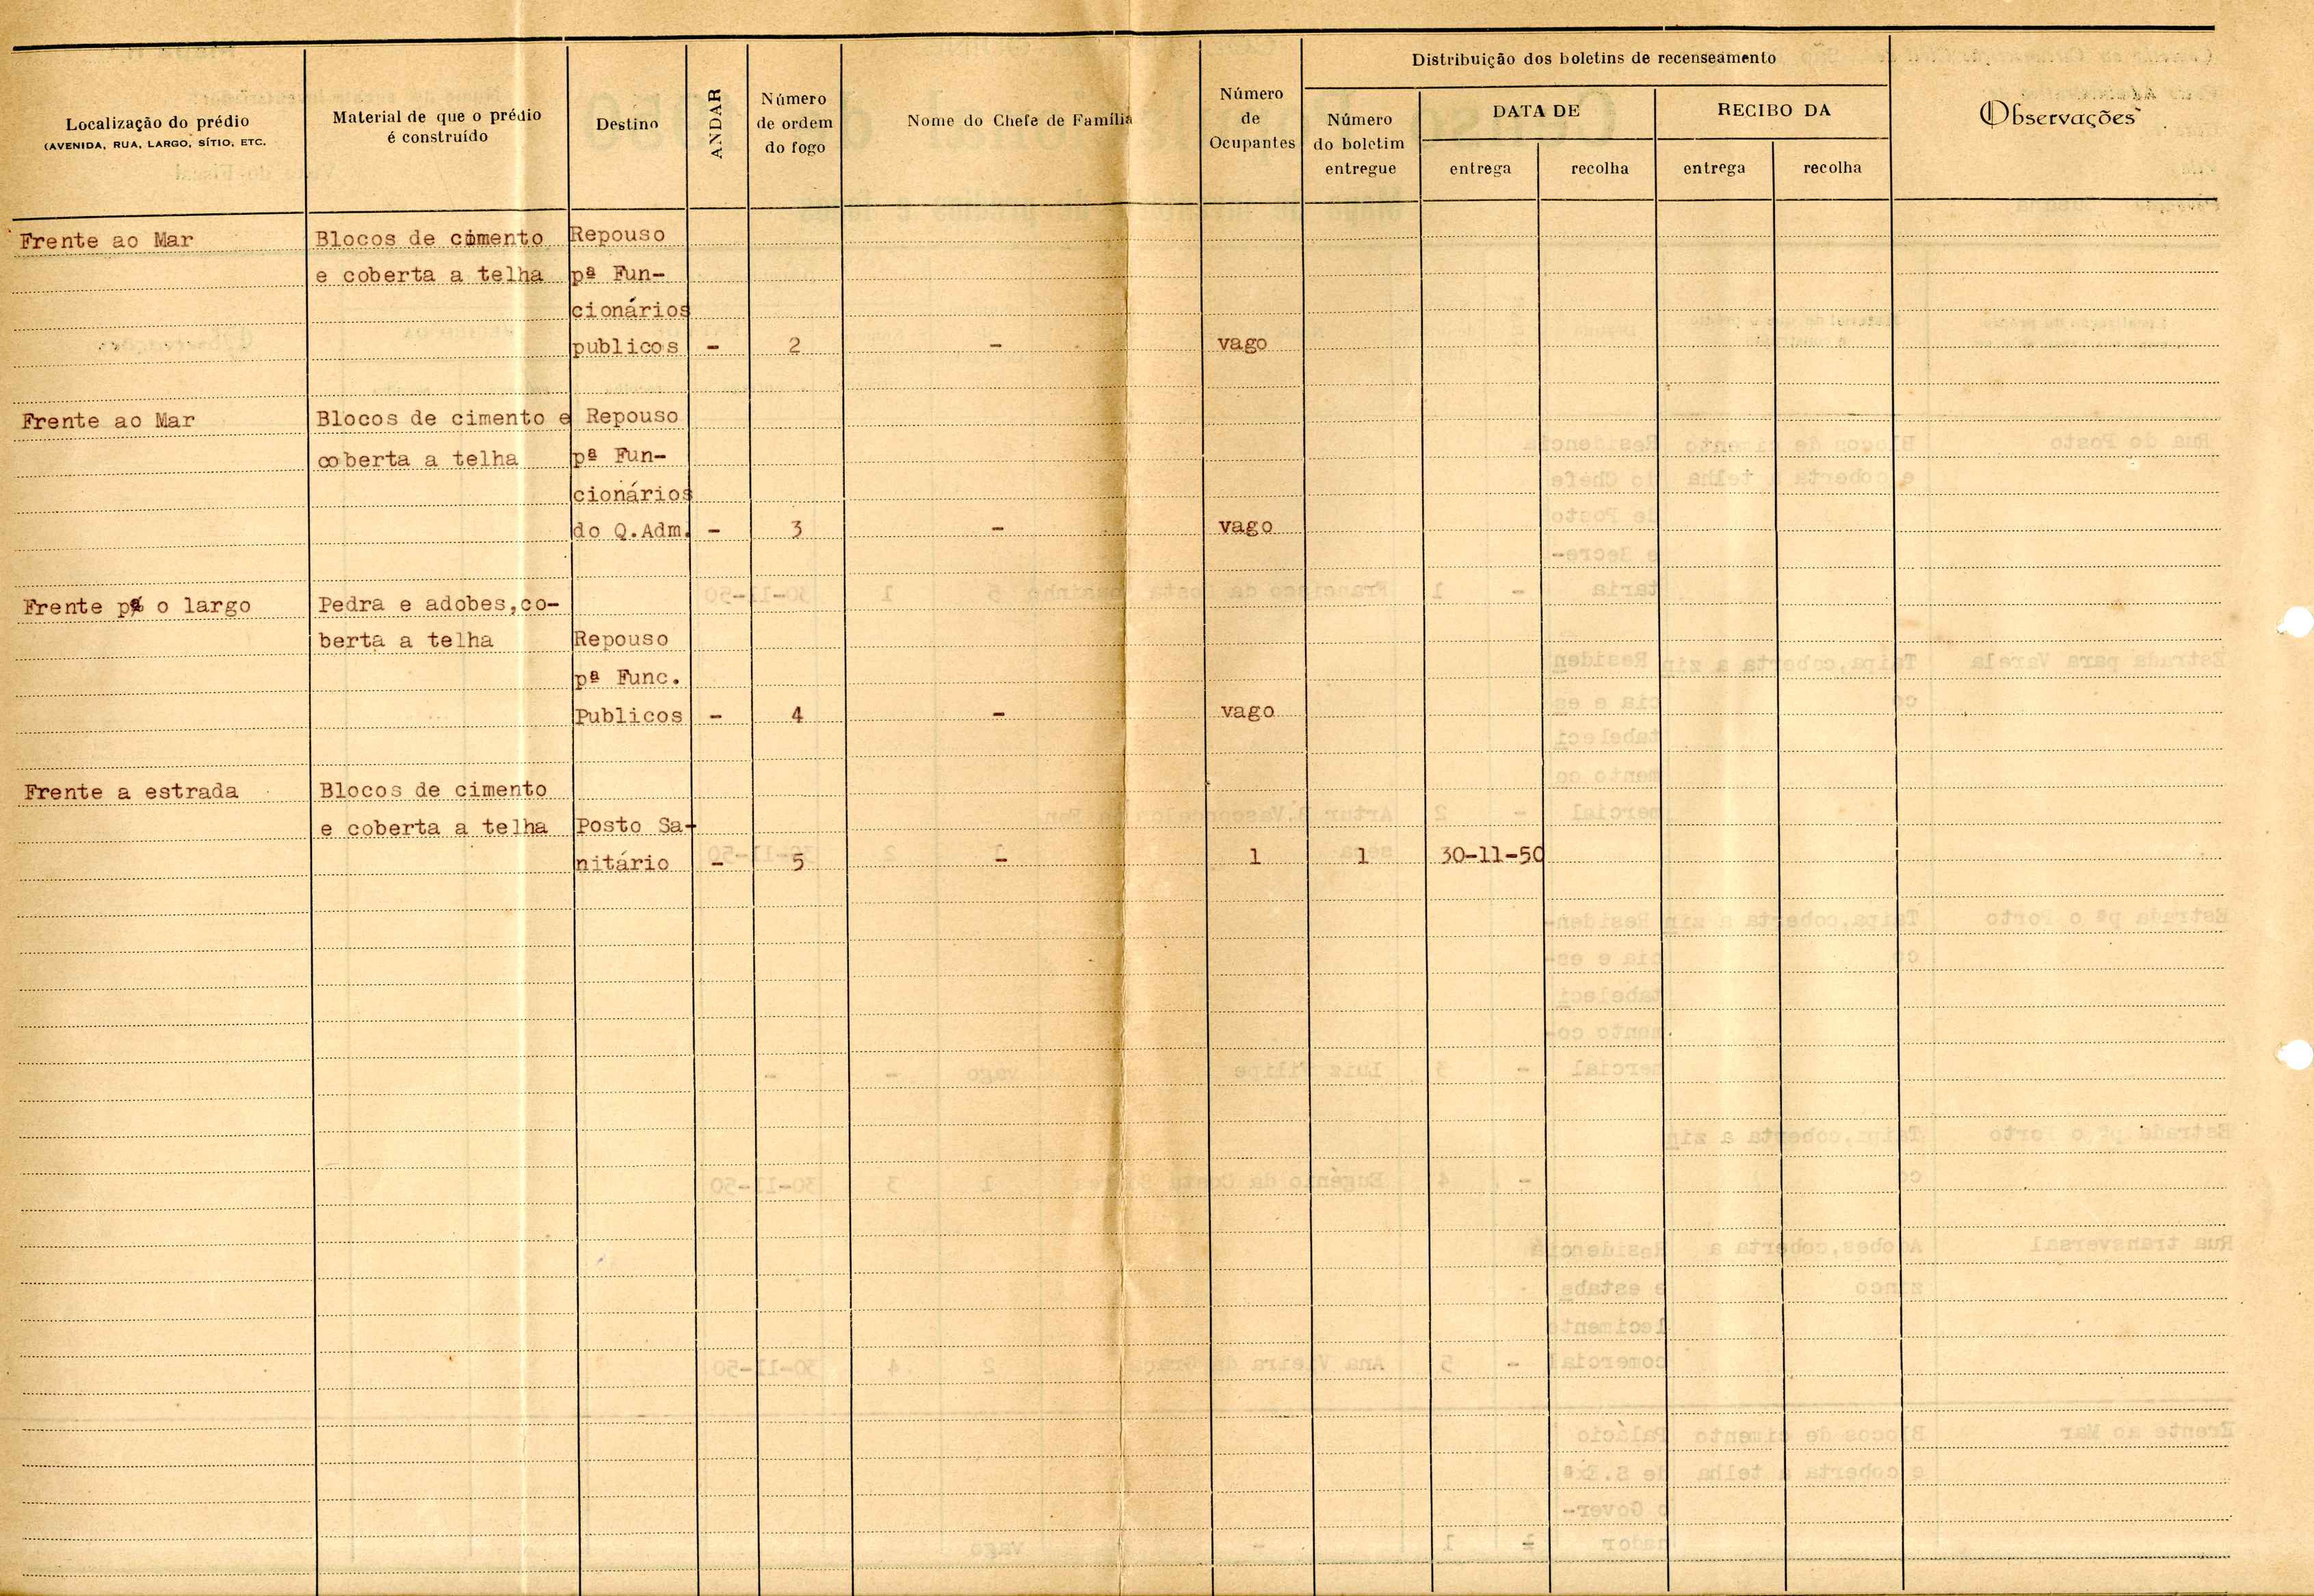 Localização do prédio
(AVENIDA, RUA, LARGO, SÍTIO, ETC.
Material de que o prédio
é construído
Destino
ANDAR
Número
de ordem
do fogo
Nome do Chefe de Família
Número
de
Ocupantes
Distribuição dos boletins de recenseamento
Número
do boletim
entregue
DATA DE
entrega
recolha
RECIBO DA
entrega
recolha
Observações
Frente ao Mar Blocos de cimento Repouso
e coberta a telha pª Fun-
cionários
publicos - 2 - vago
Frente ao Mar Blocos de cimento e Repouso
coberta a telha pª Fun-
cionários
do Q.Adm. - 3 - vago
Frente pª o largo Pedra e adobes,co-
berta a telha Repouso
pª Func.
Publicos - 4 - vago
Frente a estrada Blocos de cimento
e coberta a telha Posto Sa-
nitário - 5 - 1 1 30-11-50